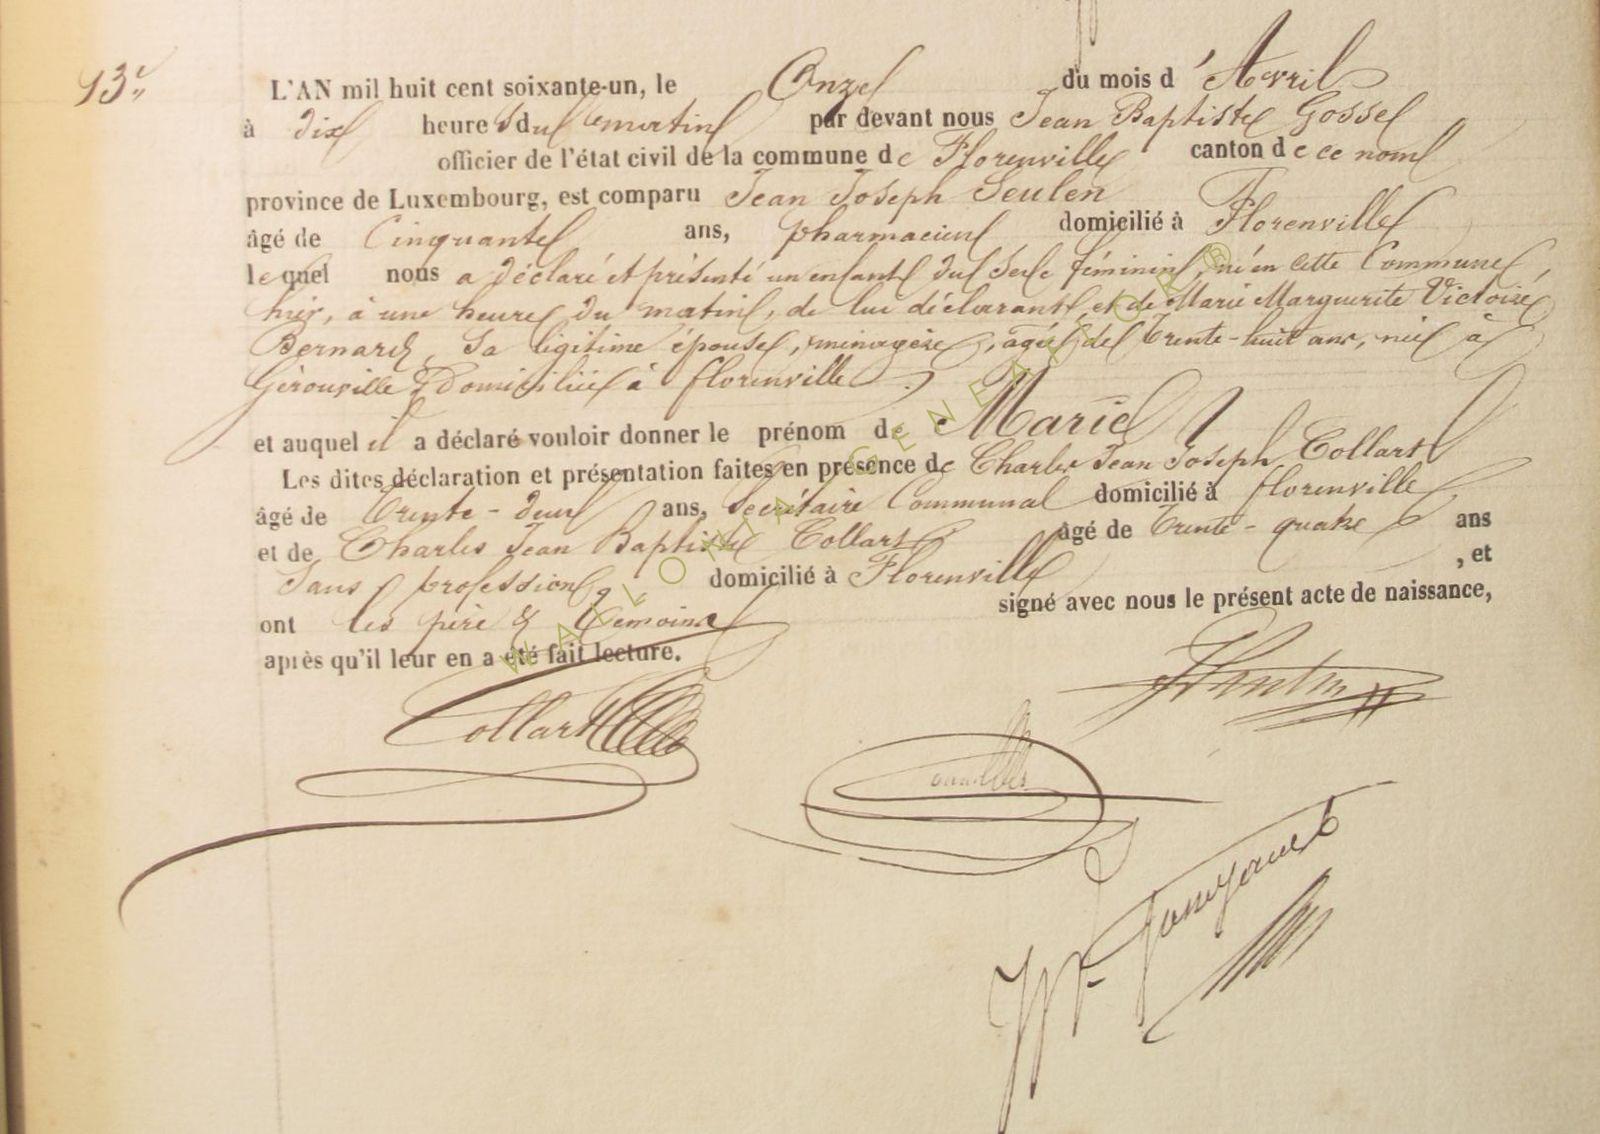 13e
L'AN mil huit cent soixante-un, le Onze du mois d'Avril
à dix heures du matin par devant nous Jean Baptiste Gosse
officier de l'état civil de la commune de Florenville canton de ce nom
province de Luxembourg, est comparu Jean Joseph Seulen
âgé de Cinquante ans, pharmacien domicilié à Florenville
lequel nous a déclaré et présenté un enfant du sexe féminin, né en cette Commune,
hier, à une heure du matin, de lui déclarant, et de Marie Marguerite Victoire
Bernard, sa légitime épouse, ménagère, agée de Trente-huit ans, née à
Gérouville & Domiciliée à florenville
et auquel il a déclaré vouloir donner le prénom de Marie
Les dites déclaration et présentation faites en présence de Charles Jean Joseph Collart
âgé de Trente-deux ans, Secrétaire Communal domicilié à florenville
et de Charles Jean Baptiste Collart âgé de Trente-quatre ans
Sans profession domicilié à Florenville , et
ont les père & témoins signé avec nous le présent acte de naissance,
après qu'il leur en a été fait lecture.
Collart
WALLONIA GENEALOGOR®